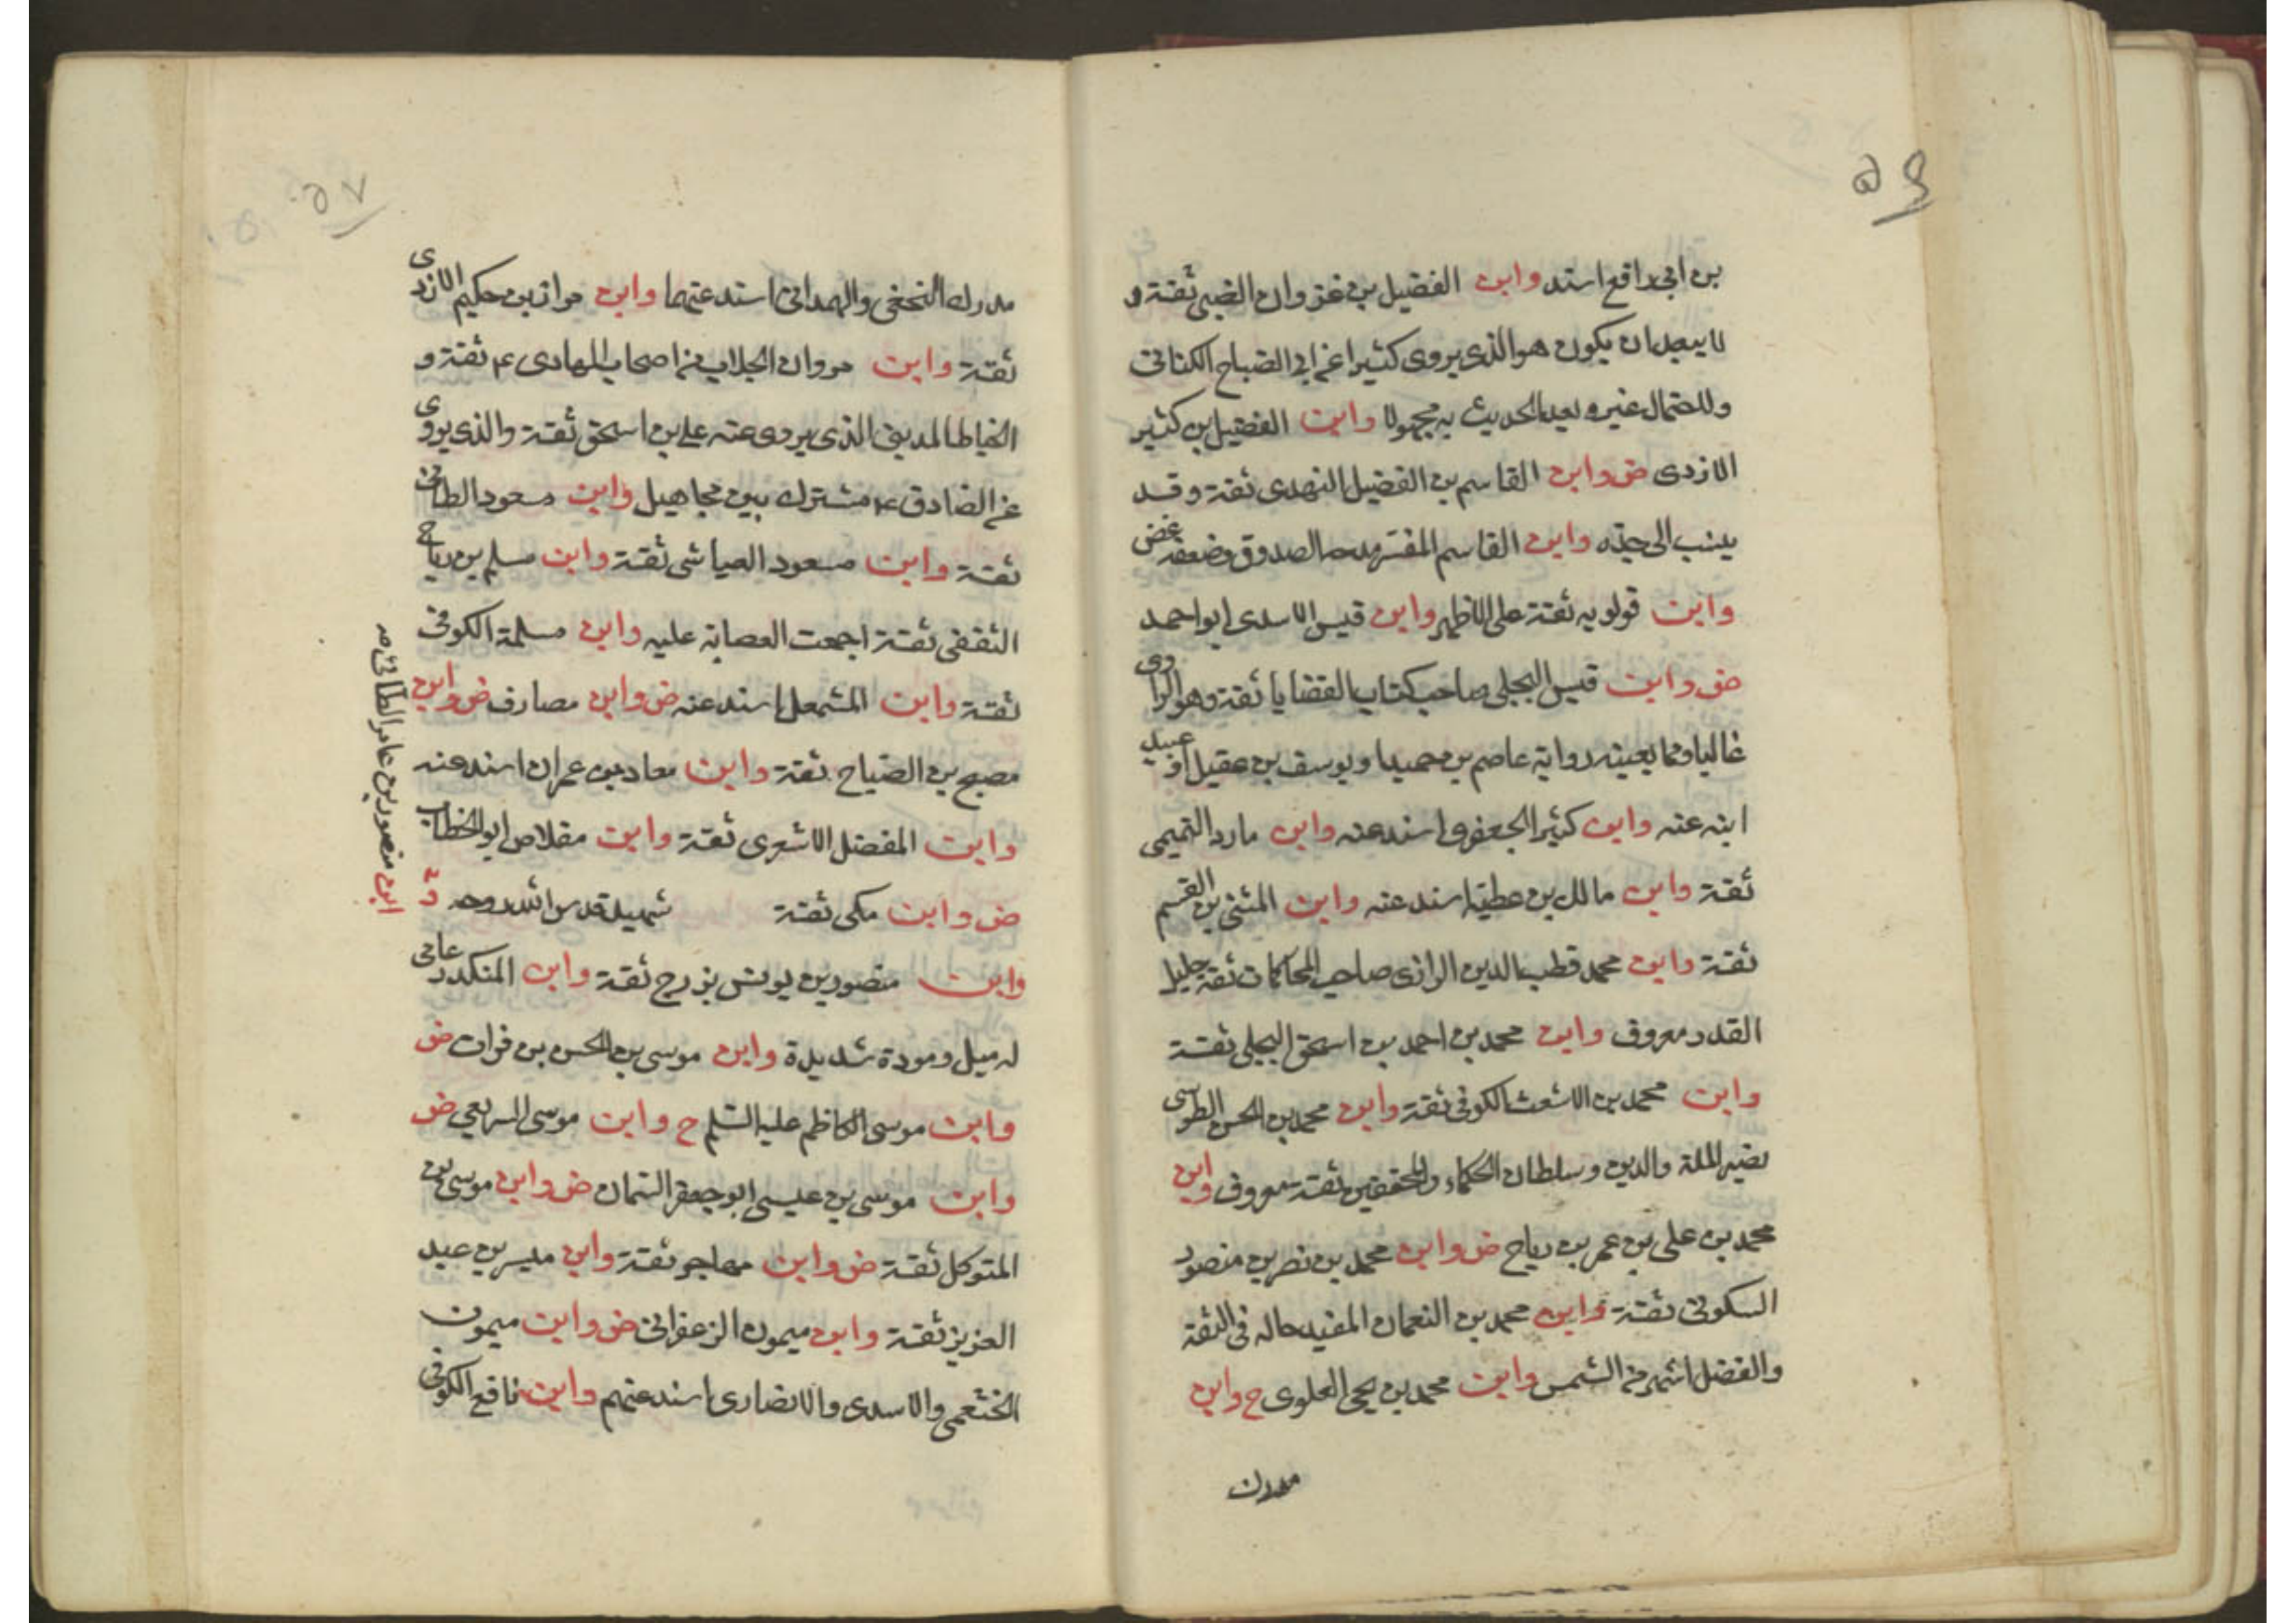 ٥٦
بن ابی رافع اسند وابن الفضیل بن غزوان الضبی ثقة و
لا یبعد ان یکون هو الذی یروی کثیرا عن ابی الصباح الکنانی
وللاحتمال غیره یعد الحدیث به مجهولا وابن الفضیل بن کثیر
الازدی ض وابن القاسم بن الفضیل النهدی ثقة وقد
ینسب الی جده وابن القاسم المفسر مدحه الصدوق وضعفه غض
وابن قولویه ثقة علی الاظهر وابن قیس الاسدی ابو احمد
ض وابن قیس البجلی صاحب کتاب القضایا ثقة وهو الراوی
غالبا ومما یعینه روایة عاصم بن حمید او یوسف بن عقیل او عبید
ابنه عنه وابن کثیر الجعفری اسند عنه وابن مارد التمیمی
ثقة وابن مالک بن عطیة اسند عنه وابن المثنی بن القسم
ثقة وابن محمد قطب الدین الرازی صاحب المحاکمات ثقة جلیل
القدر معروف وابن محمد بن احمد بن اسحق البجلی ثقة
وابن محمد بن الاشعث الکوفی ثقة وابن محمد بن الحسن الطوسی
نصیر الملة والدین وسلطان الحکماء والمحققین ثقة معروف وابن
محمد بن علی بن عمر بن ریاح ض وابن محمد بن نصر بن منصور
السکونی ثقة وابن محمد بن النعمان المفید حاله فی الثقة
والفضل اشهر من الشمس وابن محمد بن یحیی العلوی ح وابن
مدرک
٥٧
مدرک النخعی والهمدانی اسند عنهما وابن مرازم بن حکیم الازدی
ثقة وابن مروان الجلاب من اصحاب الهادی ع ثقة و
الخیاط المدینی الذی یروی عنه علی بن اسحق ثقة والذی یروی
عن الصادق ع مشترک بین مجاهیل وابن مسعود الطائی
ثقة وابن مسعود العیاشی ثقة وابن مسلم بن ریاح
الثقفی ثقة اجمعت العصابة علیه وابن مسلمة الکوفی
ثقة وابن المشمعل اسند عنه ض وابن مصارف ض وابن
مصبح بن الصباح ثقة وابن معاد بن عمران اسند عنه
وابن المفضل الاشعری ثقة وابن مقلاص ابو الخطاب
ض وابن مکی ثقة شهید قدس الله روحه و
وابن منصور بن یونس بزرج ثقة وابن المنکدر عامی
له میل ومودة شدیدة وابن موسی بن الحسن بن فرات ض
وابن موسی الکاظم علیه السلم ح وابن موسی السریعی ض
وابن موسی بن عیسی ابو جعفر السمان ض وابن موسی بن
المتوکل ثقة ض وابن مهاجر ثقة وابن میسر بن عبد
العزیز ثقة وابن میمون الزعفرانی ض وابن میمون
الخثعمی والاسدی والانصاری اسند عنهم وابن نافع الکوفی
ابن منصور بن عامر الطائی